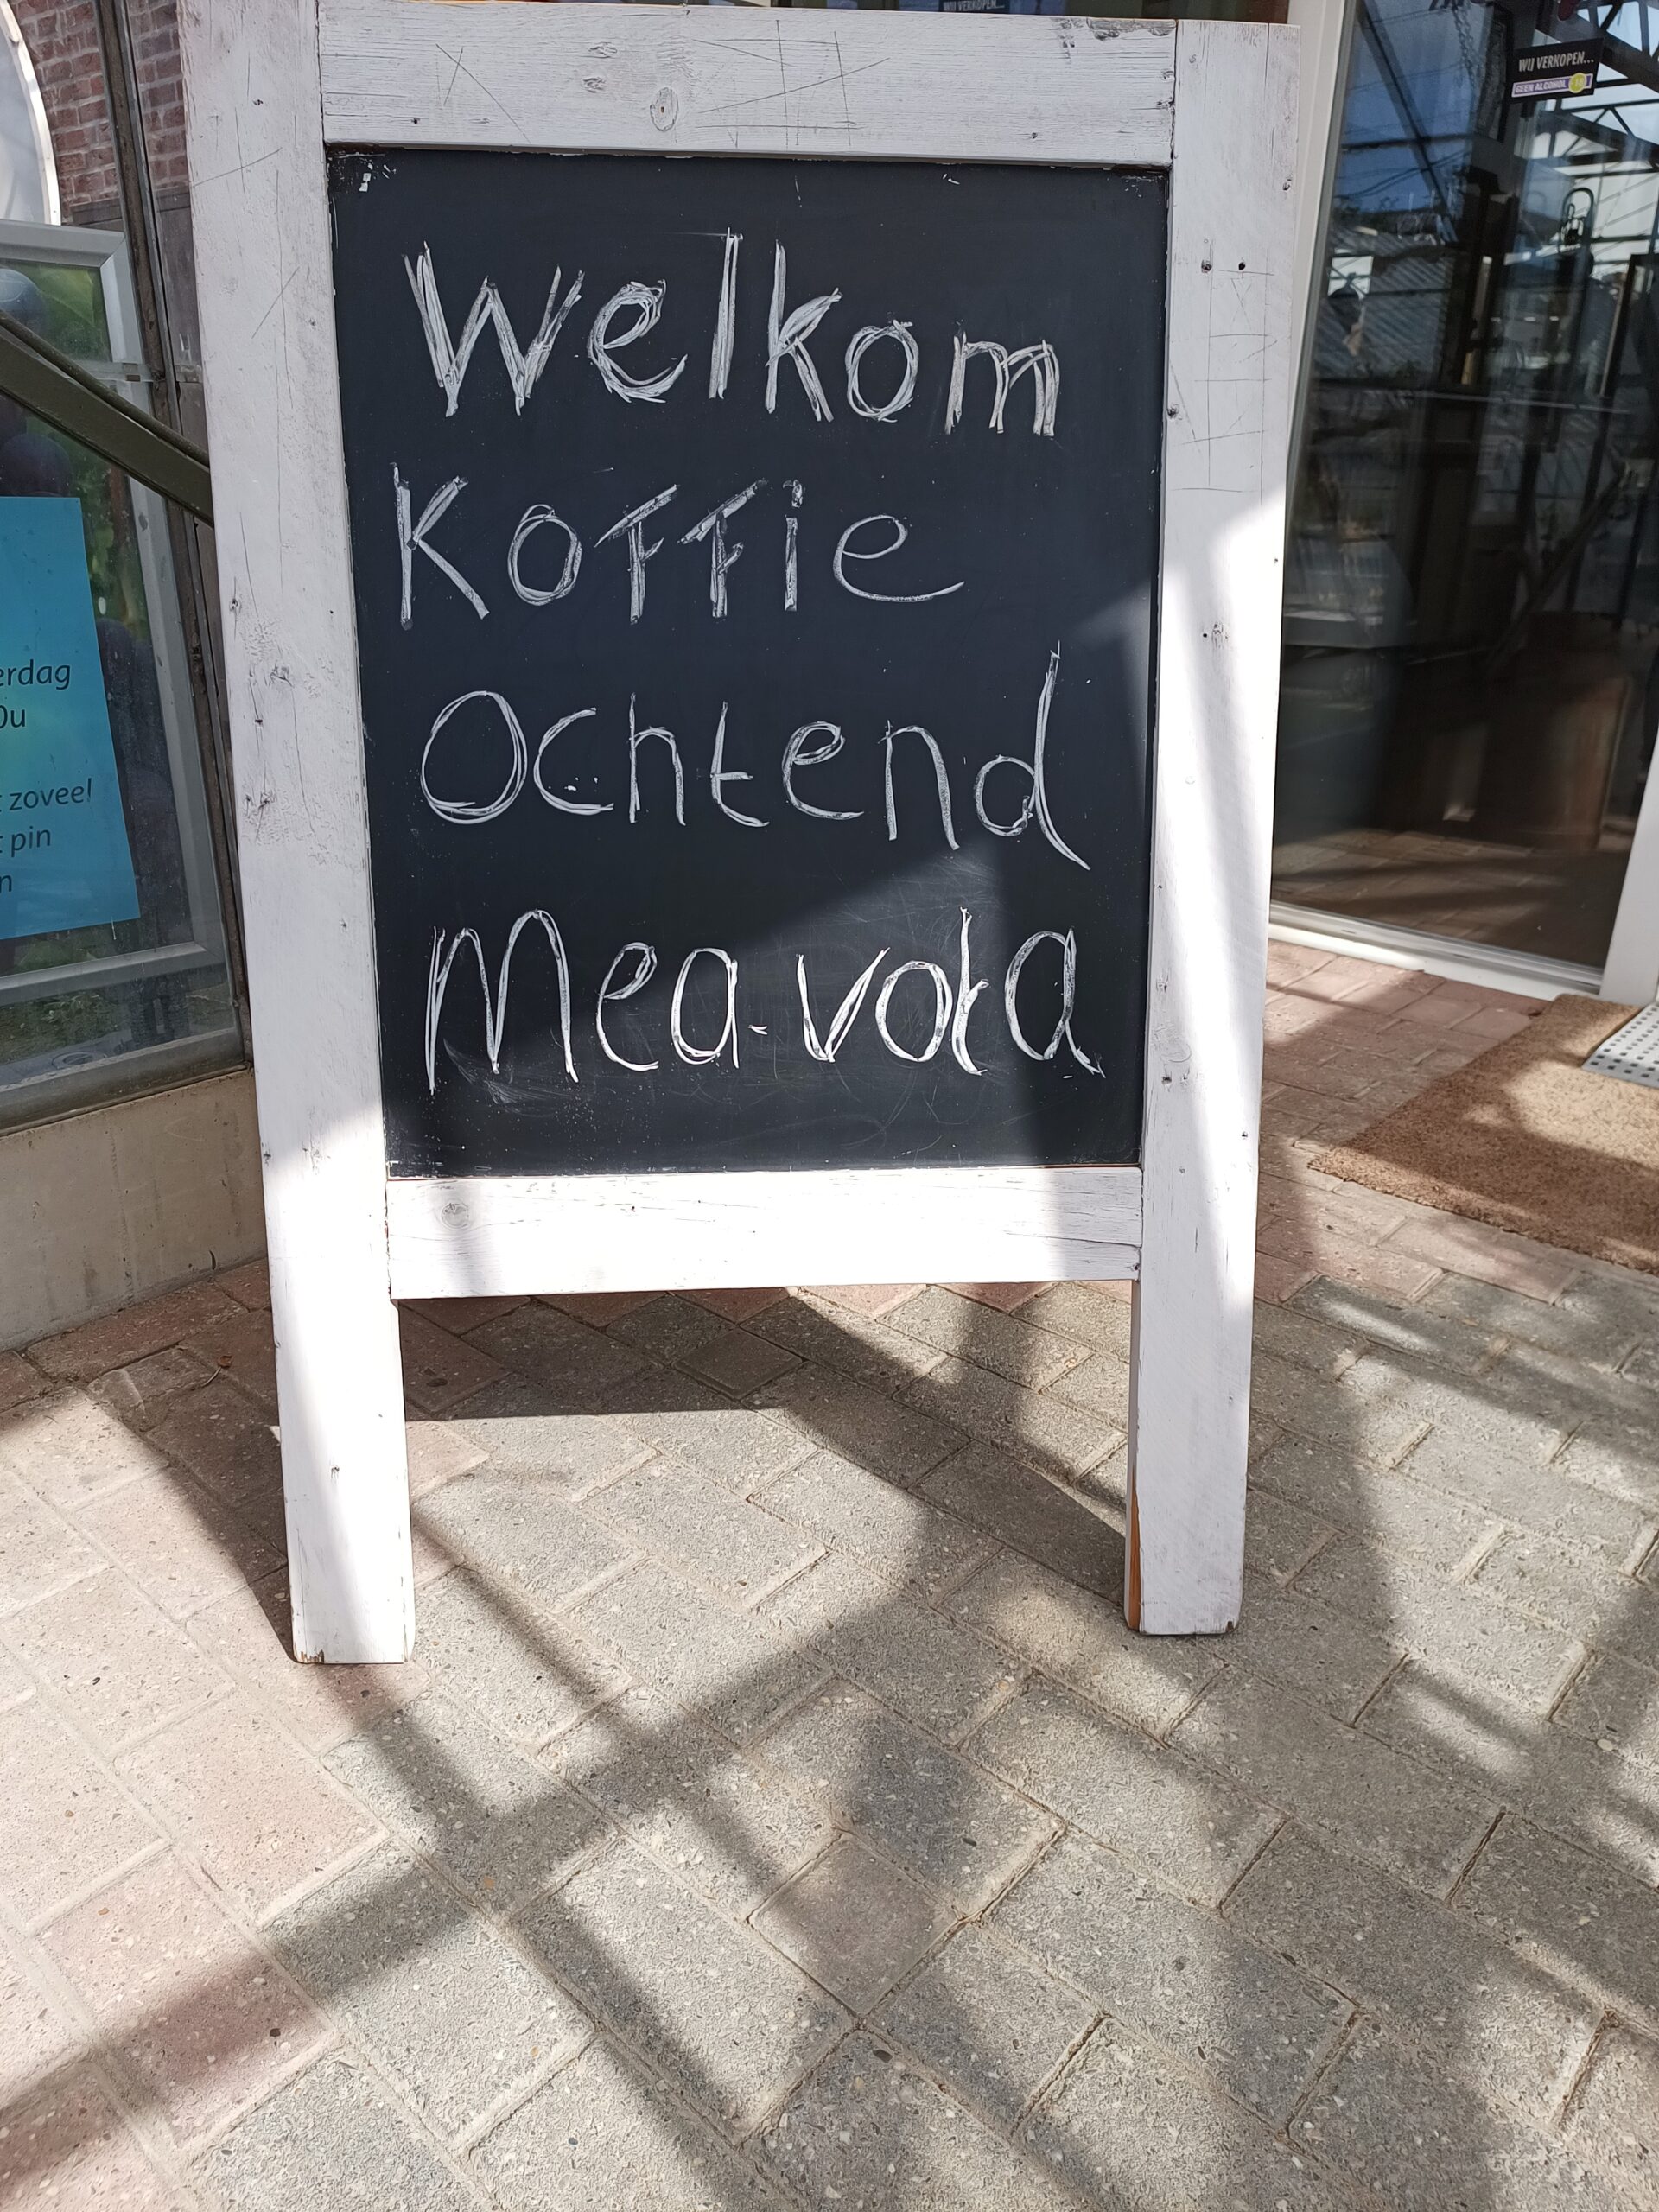 WIJ VERKOPEN...
WIJ VERKOPEN...
GEEN ALCOHOL
Welkom
Koffie
Ochtend
Mea-vota
erdag
0u
t zoveel
t pin
n